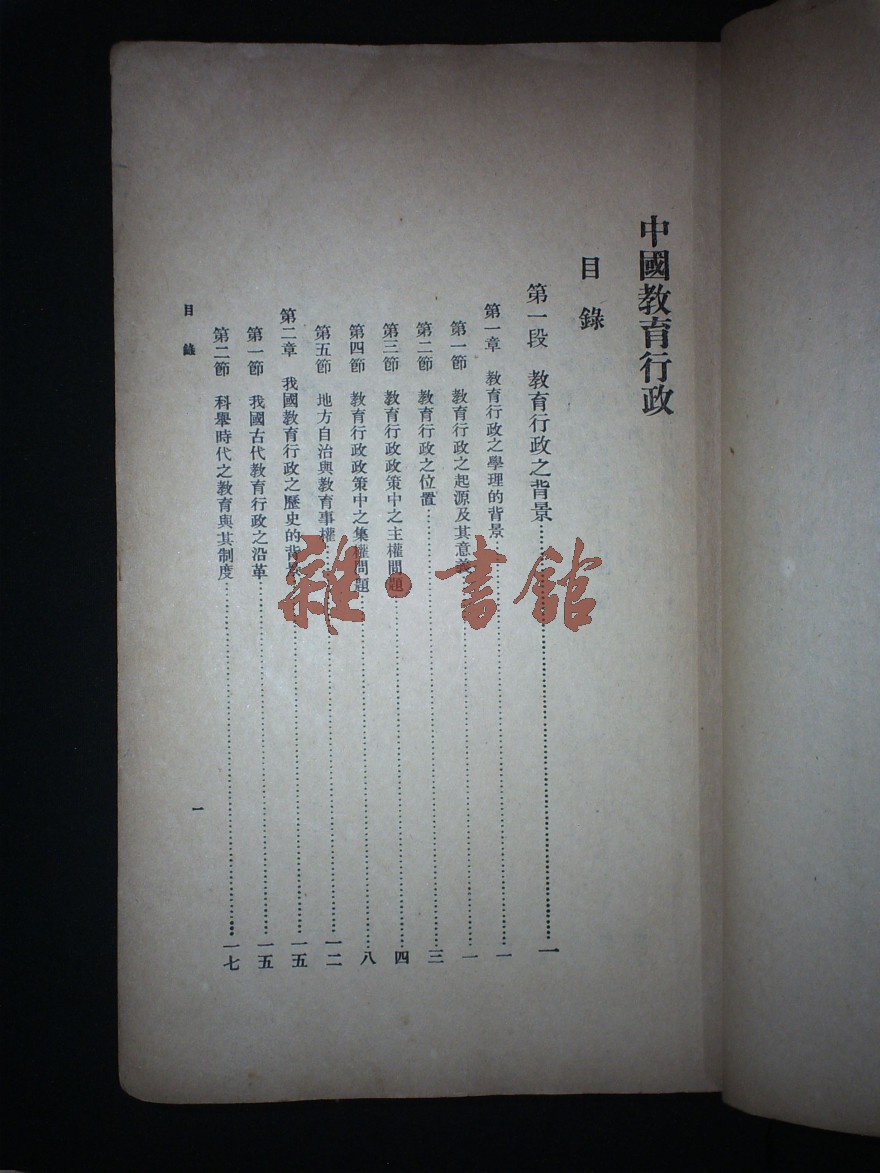 中國教育行政
目錄
第一段 教育行政之背景……一
第一章 教育行政之學理的背景……一
第一節 教育行政之起源及其意義……一
第二節 教育行政之位置……三
第三節 教育行政政策中之主權問題……四
第四節 教育行政政策中之集權問題……八
第五節 地方自治與教育事權……一二
第二章 我國教育行政之歷史的背景……一五
第一節 我國古代教育行政之沿革……一五
第二節 科舉時代之教育與其制度……一七
目錄
一
雜·書館